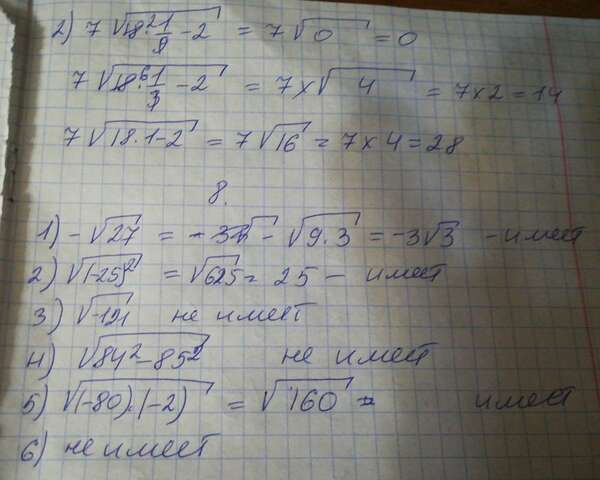 2) 7 √(18·1/9 - 2) = 7√0 = 0
7 √(18·1/3 - 2) = 7×√4 = 7×2 = 14
7 √(18·1-2) = 7√16 = 7×4 = 28
8.
1) -√27 = - √(9·3) = -3√3 - имеет
2) √(-25)² = √625 = 25 - имеет
3) √-121 не имеет
4) √(84²-85²) не имеет
5) √((-80)·(-2)) = √160 - имеет
6) не имеет